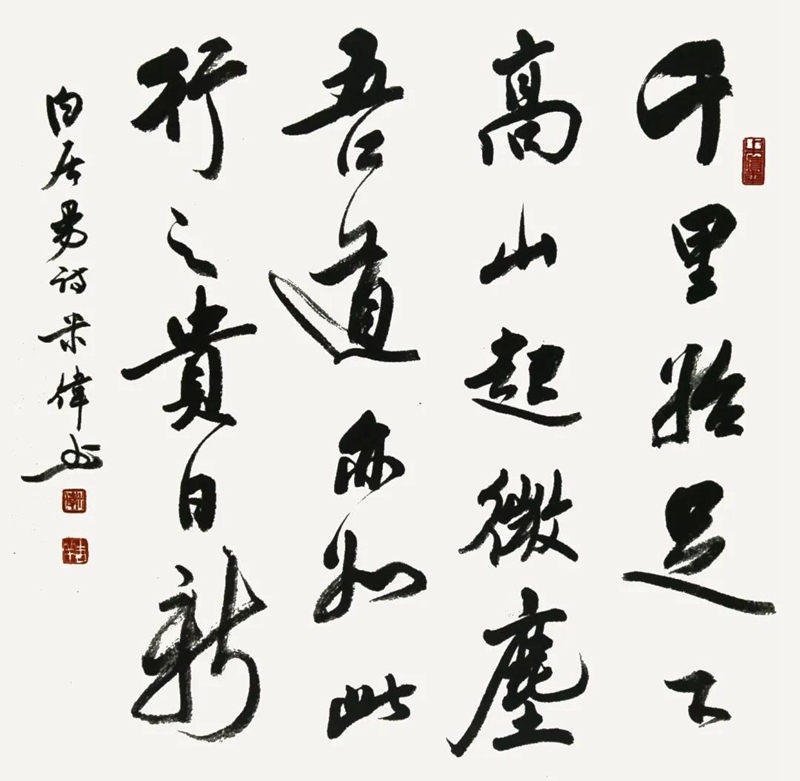 千里始足下
高山起微塵
吾道亦如此
行之貴日新
白居易诗荣偉书